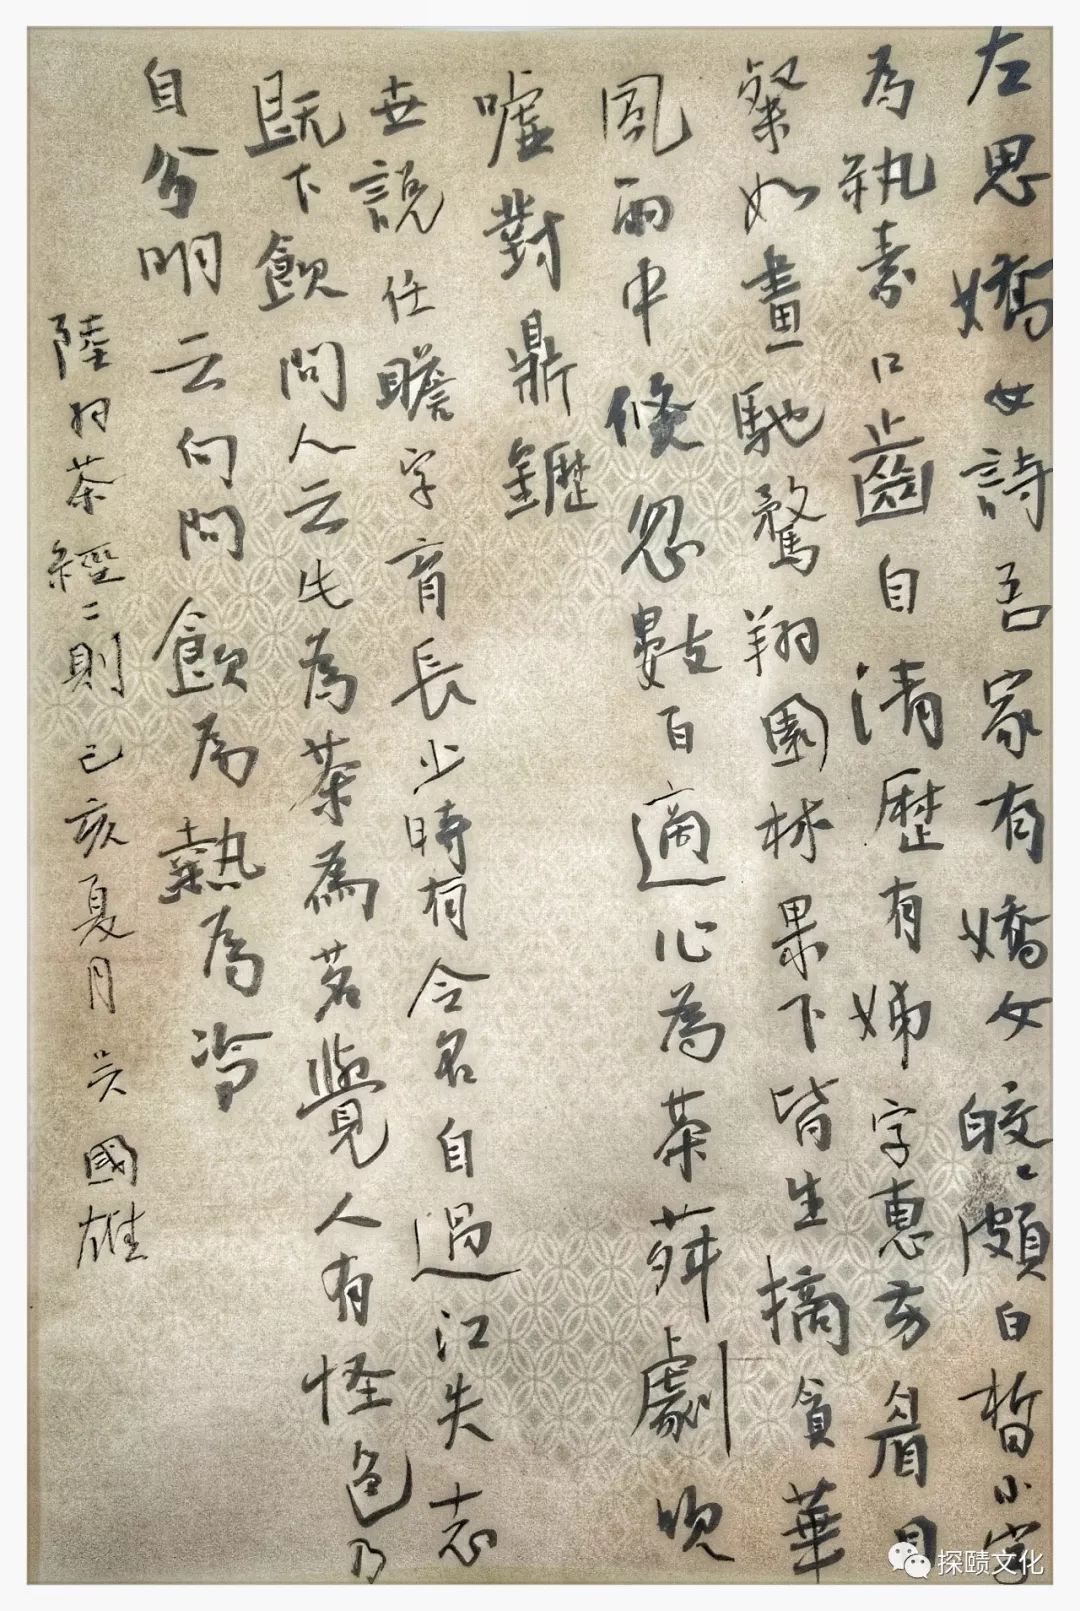 左思嬌女詩吾家有嬌女皎〻頗白晳小字
為紈素口齒自清歷有姊字惠芳眉目
粲如畫馳騖翔園林果下皆生摘貪華
風雨中倏忽數百適心為荼荈劇吹
噓對鼎䥶
世說任瞻字育長少時有令名自過江失志
既下飲問人云此為茶為茗覺人有怪色乃
自分明云向問飲為熱為冷
陸羽茶經二則 己亥夏月 吴國雄
探赜文化